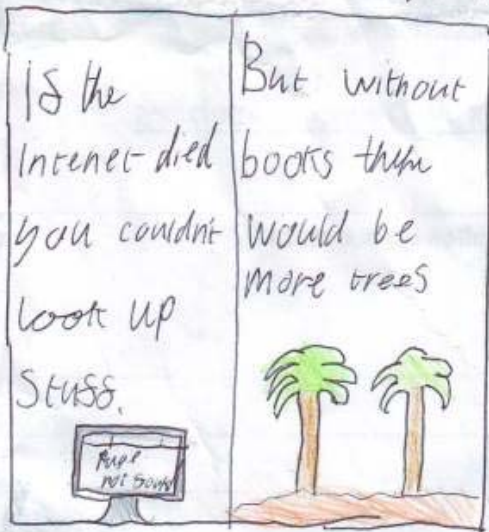 If the
Intenet died
you couldn't
look up
Stuff.
Page
not found
But without
books then
would be
more trees